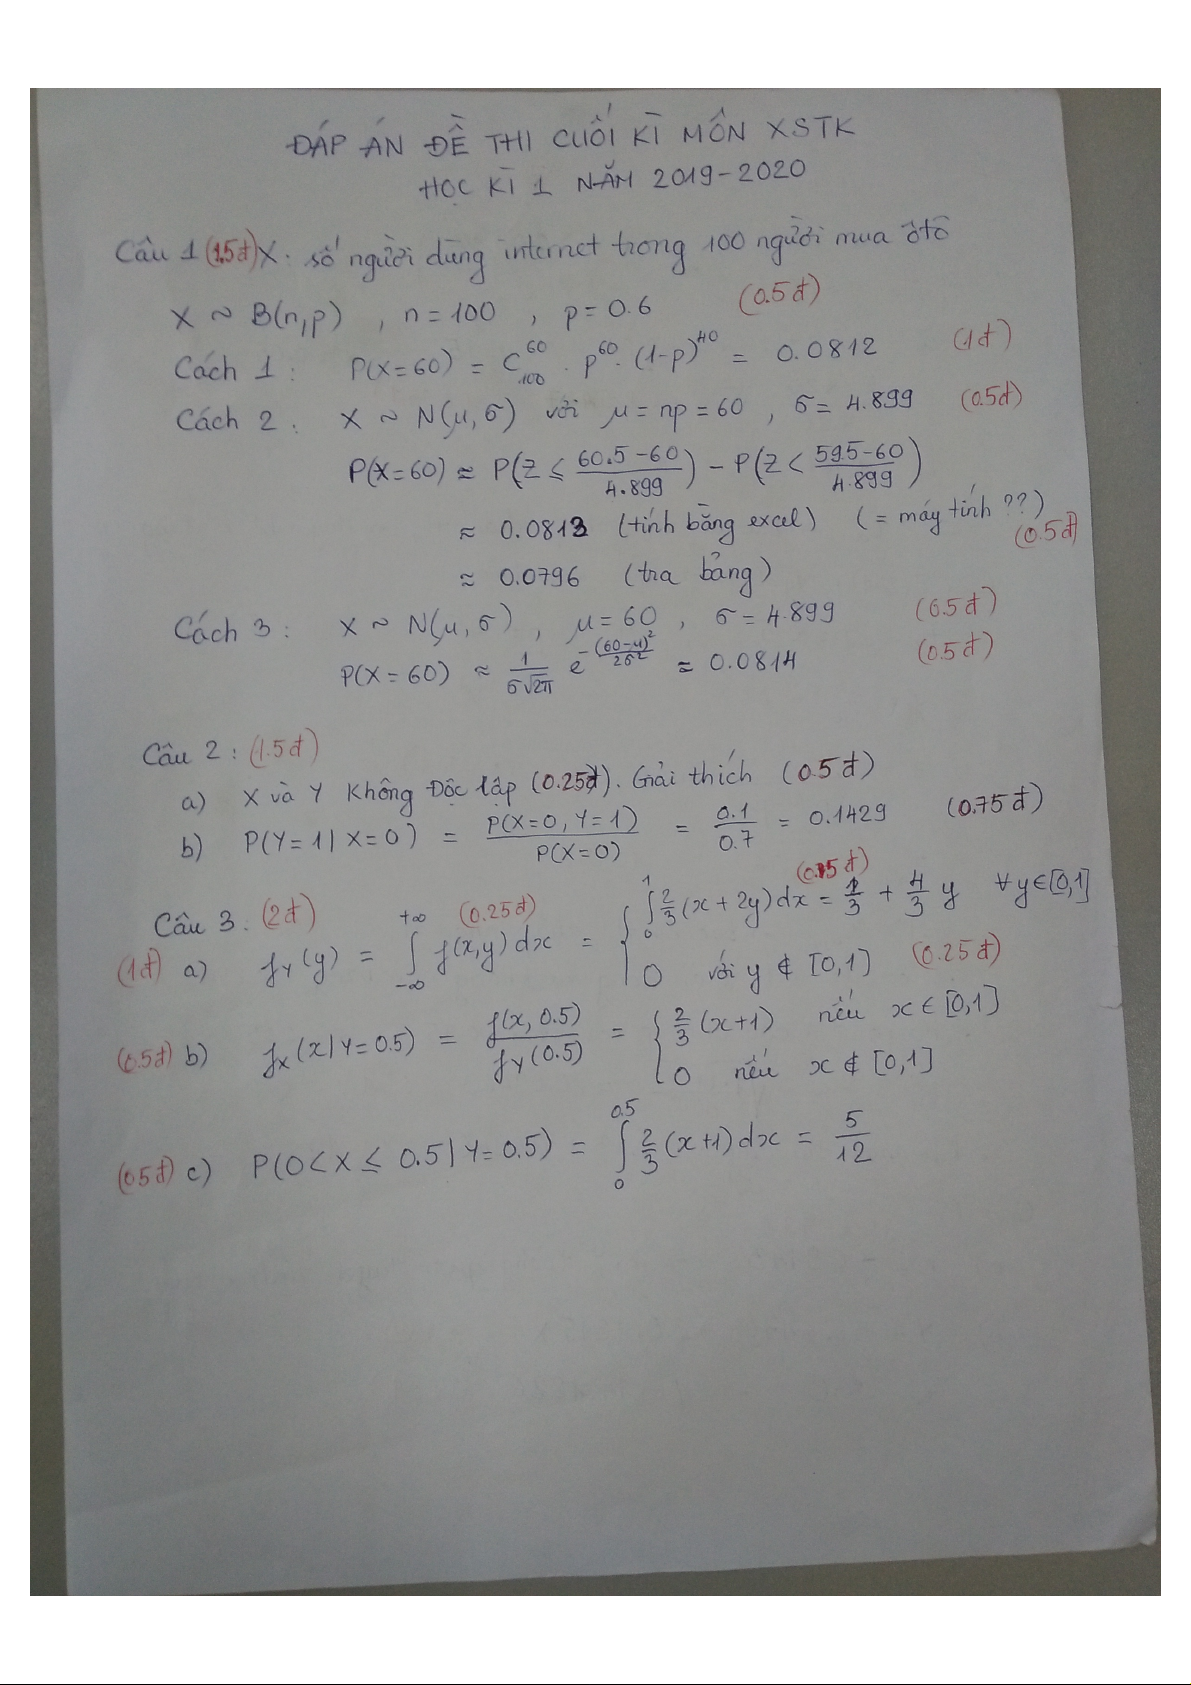 ĐÁP ÁN ĐỀ THI CUỐI KÌ MÔN XSTK
HỌC KÌ 1 NĂM 2019-2020
Câu 1 (1.5đ) X: số người dùng internet trong 100 người mua ôtô
X ~ B(n,p) , n = 100 , p = 0.6 (0.5đ)
Cách 1: P(X=60) = C_100^60 . p^60 . (1-p)^40 = 0.0812 (1đ)
Cách 2: X ~ N(μ,σ) với μ = np = 60 , σ = 4.899 (0.5đ)
P(X=60) ≈ P(Z ≤ (60.5-60)/4.899) - P(Z < (59.5-60)/4.899)
≈ 0.0813 (tính bằng excel) (= máy tính ??) (0.5đ)
≈ 0.0796 (tra bảng)
Cách 3: X ~ N(μ,σ) , μ = 60 , σ = 4.899 (0.5đ)
P(X=60) ≈ 1/(σ√2π) e^(-(60-μ)²/2σ²) ≈ 0.0814 (0.5đ)
Câu 2: (1.5đ)
a) X và Y Không Độc lập (0.25đ). Giải thích (0.5đ)
b) P(Y=1|X=0) = P(X=0,Y=1)/P(X=0) = 0.1/0.7 = 0.1429 (0.75đ)
Câu 3: (2đ)
(1đ) a) f_Y(y) = ∫_{-∞}^{+∞} f(x,y)dx (0.25đ) = { ∫_0^1 2/3 (x+2y)dx = 1/3 + 4/3 y ∀y∈[0,1]
0 với y ∉ [0,1] (0.25đ)
(0.5đ) b) f_X(x|Y=0.5) = f(x,0.5)/f_Y(0.5) = { 2/3 (x+1) nếu x ∈ [0,1]
0 nếu x ∉ [0,1]
(0.5đ) c) P(0<X≤0.5|Y=0.5) = ∫_0^0.5 2/3 (x+1)dx = 5/12